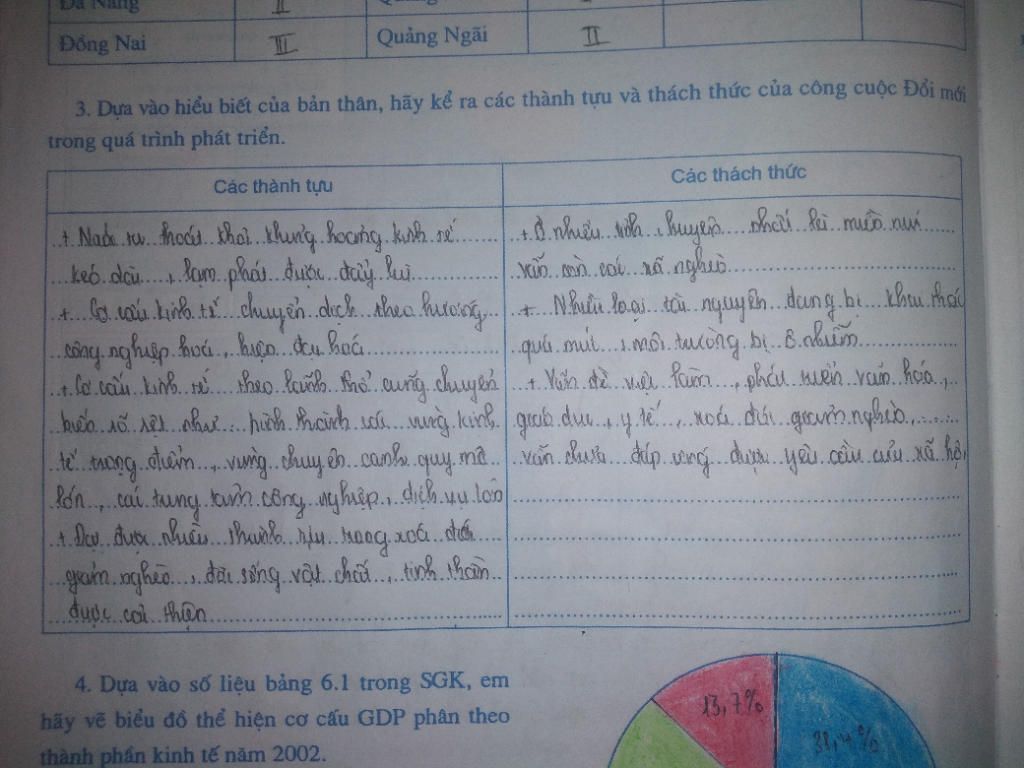 Đà Nẵng II Quảng
Đồng Nai III Quảng Ngãi II
3. Dựa vào hiểu biết của bản thân, hãy kể ra các thành tựu và thách thức của công cuộc Đổi mới
trong quá trình phát triển.
Các thành tựu
+ Nước ta thoát khỏi khủng hoảng kinh tế
kéo dài, lạm phát được đẩy lùi
+ Cơ cấu kinh tế chuyển dịch theo hướng
công nghiệp hoá, hiện đại hoá
+ Cơ cấu kinh tế theo lãnh thổ cũng chuyển
biến rõ rệt như: hình thành các vùng kinh
tế trọng điểm, vùng chuyên canh quy mô
lớn, các trung tâm công nghiệp, dịch vụ lớn
+ Đạt được nhiều thành tựu trong xoá đói
giảm nghèo, đời sống vật chất, tinh thần
được cải thiện
Các thách thức
+ Ở nhiều tỉnh, huyện nhất là miền núi
vẫn còn các xã nghèo
+ Nhiều loại tài nguyên đang bị khai thác
quá mức, môi trường bị ô nhiễm
+ Vấn đề việc làm, phát triển văn hóa,
giáo dục, y tế, xoá đói giảm nghèo,......
vẫn chưa đáp ứng được yêu cầu của xã hội
4. Dựa vào số liệu bảng 6.1 trong SGK, em
hãy vẽ biểu đồ thể hiện cơ cấu GDP phân theo
thành phần kinh tế năm 2002.
13,7%
38,4%